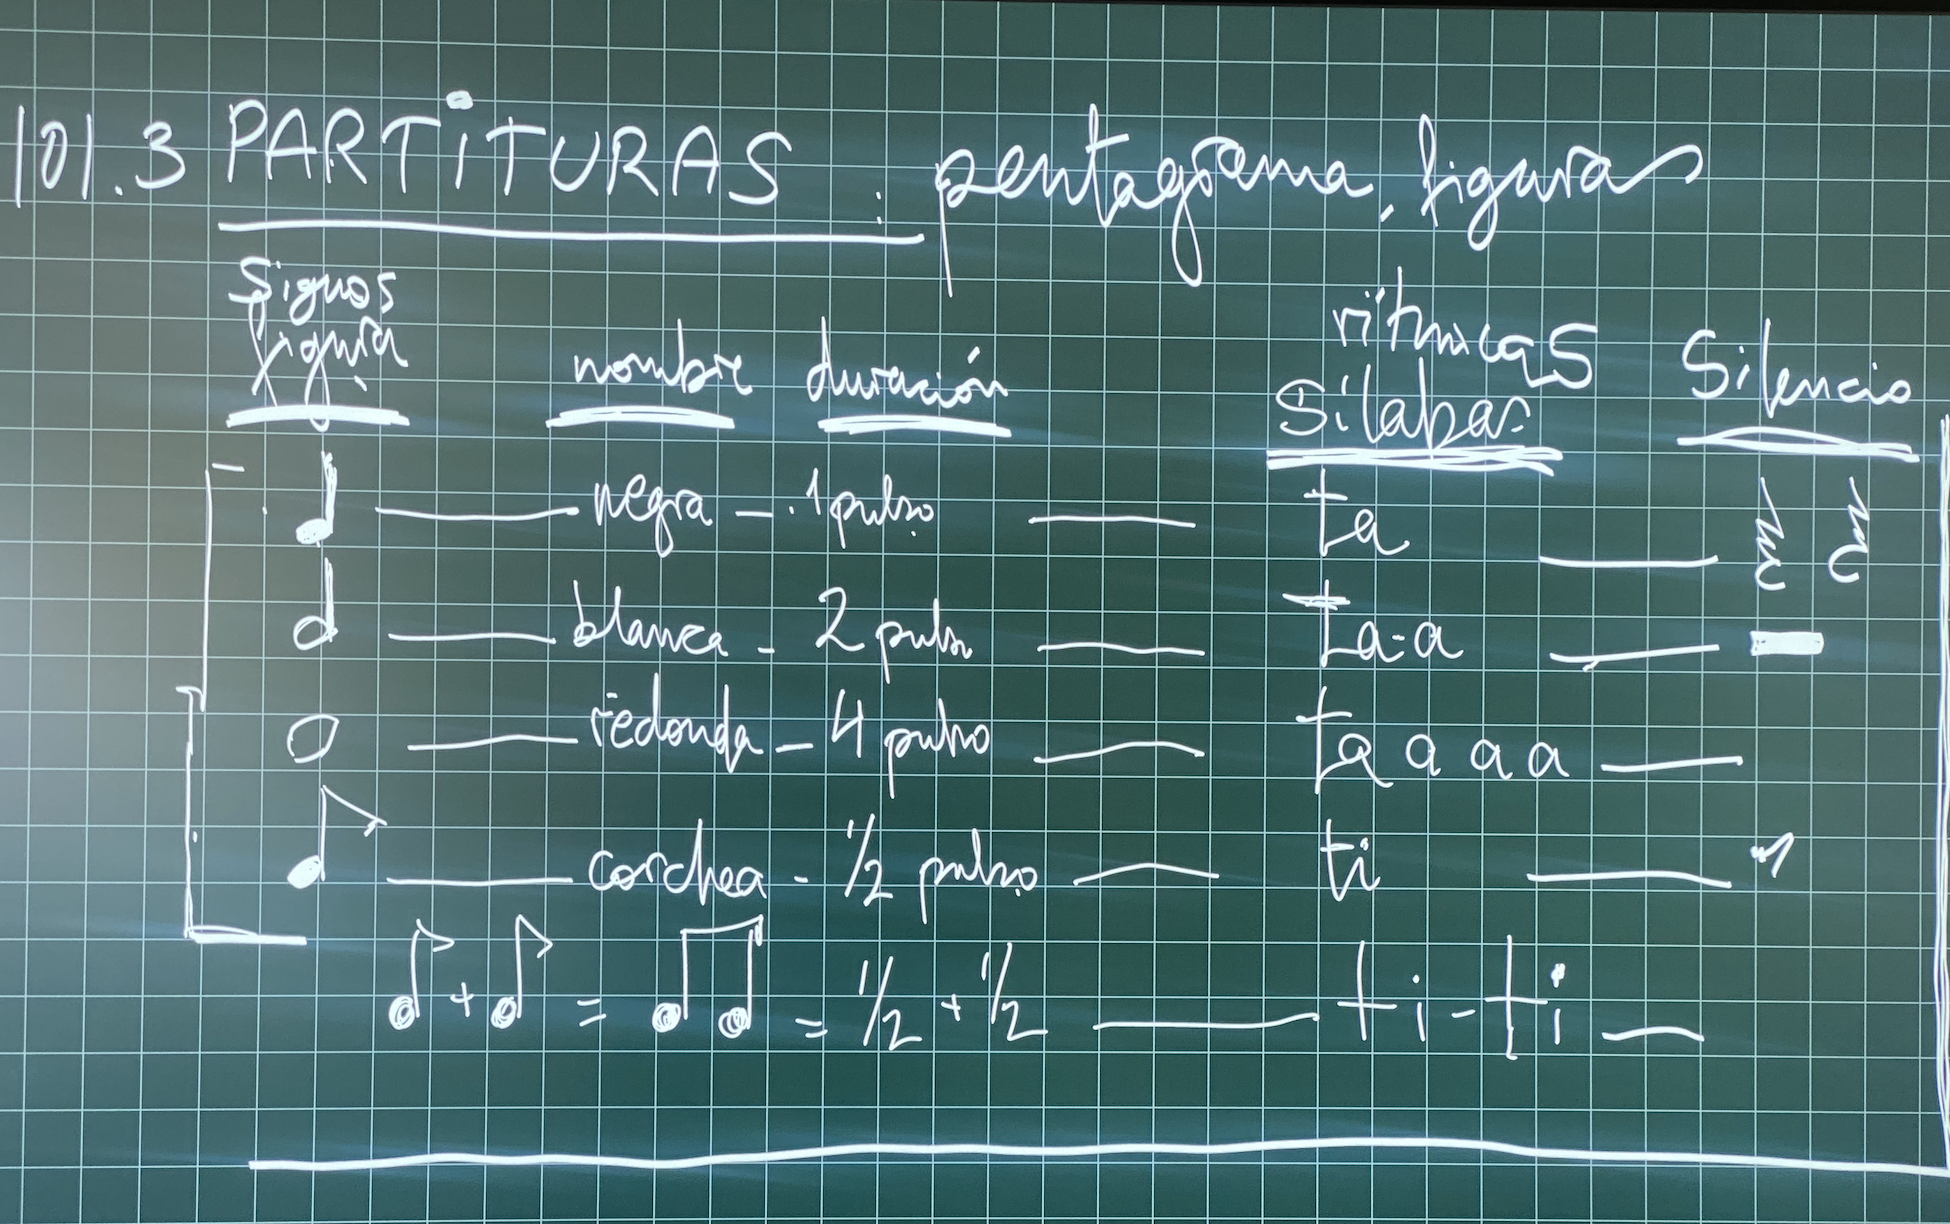 101.3 PARTITURAS : pentagrama, figuras
Signos
figura
nombre duración
rítmicas
Sílabas
Silencio
negra - 1 pulso ta
blanca - 2 pulso ta-a
redonda - 4 pulso ta a a a
corchea - 1/2 pulso ti
+ = = 1/2 + 1/2 ti-ti